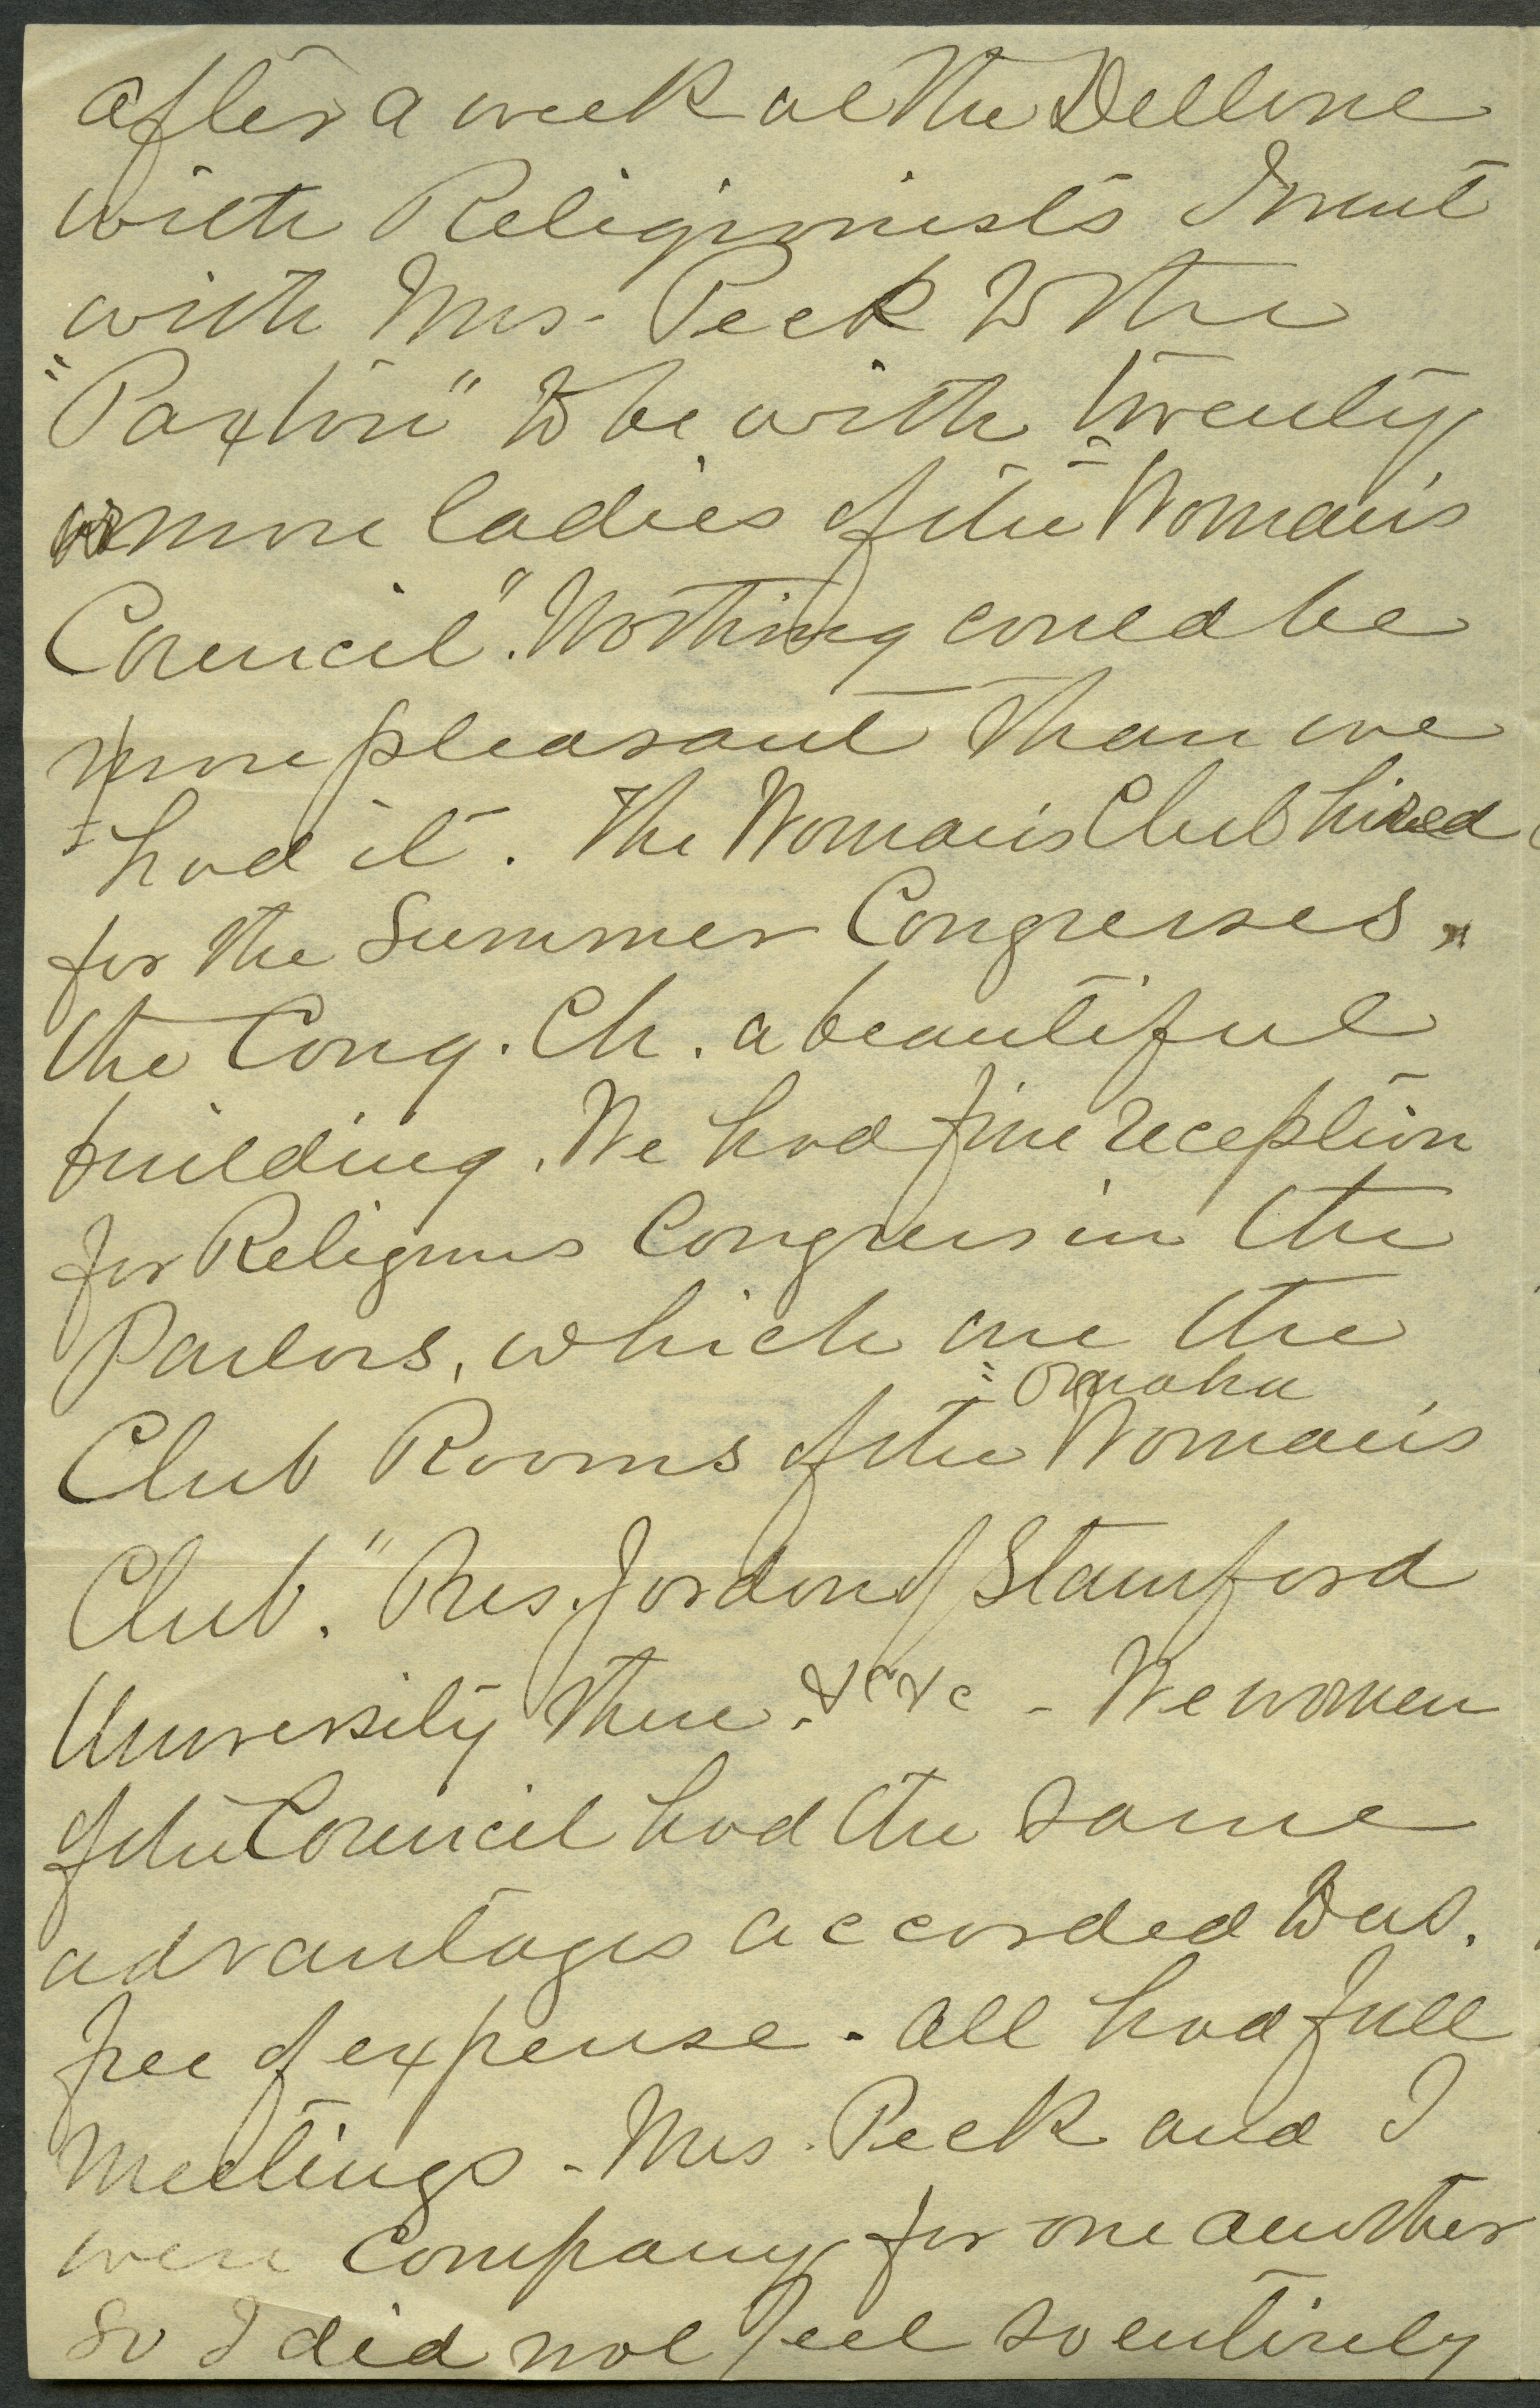 after a week at the Dellone
with Religionists I went
with Mrs. Peck to the
"Paxton" to be with twenty
or more ladies of the "Woman's
Council". Nothing could be
more pleasant than we
had it. The Woman's Club hired
for the Summer Congresses,
the Cong. Ch. a beautiful
building. We had fine reception
for Religious Congress in the
Parlors, which are the
Club Rooms of the "Omaha Woman's
Club." Pres. Jordon of Stamford
University there. &c &c - We women
of the Council had the same
advantages accorded to us.
free of expense. All had full
Meetings - Mrs. Peck and I
were company for one another
So I did not feel so entirely